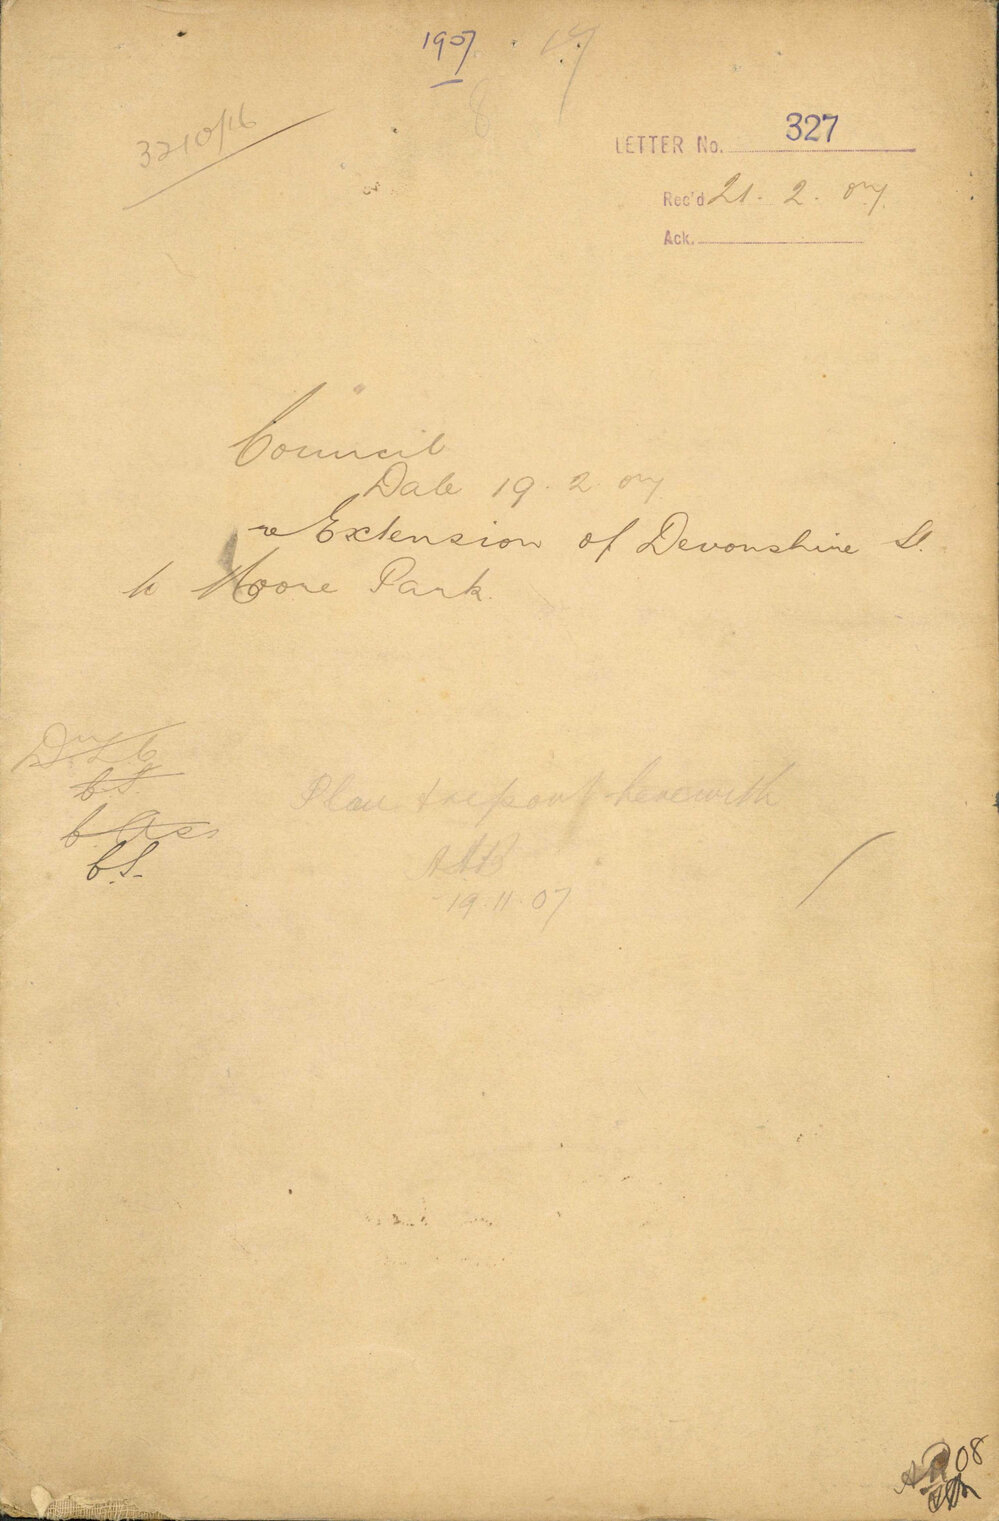 1907
3210/16
LETTER No. 327
Rec'd 21. 2. 07
Ack.
Council
Date 19. 2. 07
re Extension of Devonshire St.
to Moore Park.
C.S.
C. Ass
C.S.
Plan & report herewith
19.11.07
08